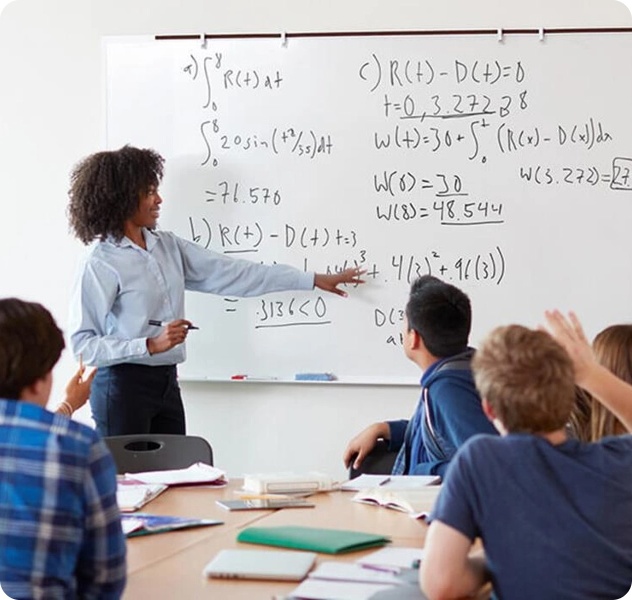 a) ∫₀⁸ R(t) dt
∫₀⁸ 20sin(t²/35)dt
=76.570
b) R(t) - D(t) t=3
. 4(3)² + .96(3))
= .3136<0
c) R(t) - D(t)=0
t=0, 3.272
W(t)=30+∫₀ᵗ (R(x) - D(x))dx
W(0)=30
W(3.272)=27.
W(8)=48.544
D(3